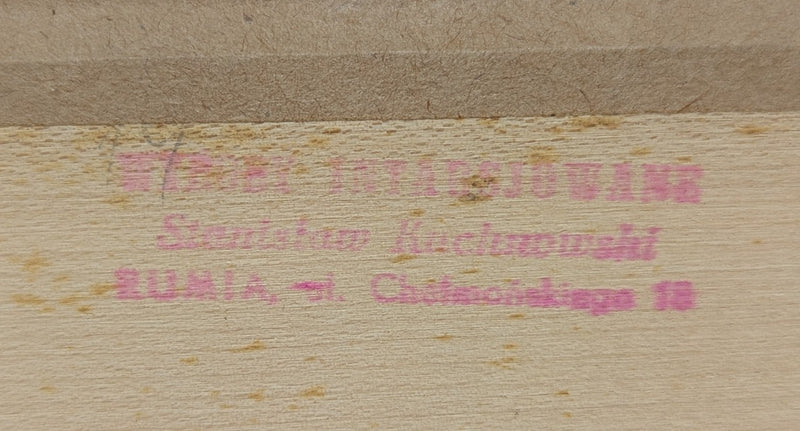 WYROBY INTARSJOWANE
Stanisław
RUMIA, ul. Chełmońskiego 18